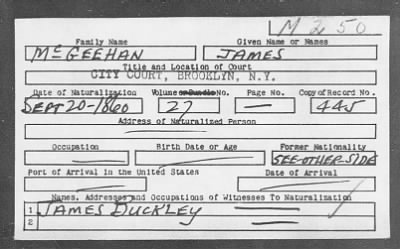 M 250
Family Name Given Name or Names
McGEEHAN JAMES
Title and Location of Court
CITY COURT, BROOKLYN, N.Y.
Date of Naturalization Volume or Bundle No. Page No. Copy of Record No.
SEPT 20-1860 27 — 445
Address of Naturalized Person
Occupation Birth Date or Age Former Nationality
SEE OTHER SIDE
Port of Arrival in the United States Date of Arrival
Names, Addresses and Occupations of Witnesses To Naturalization
1 JAMES DUCKLEY
2